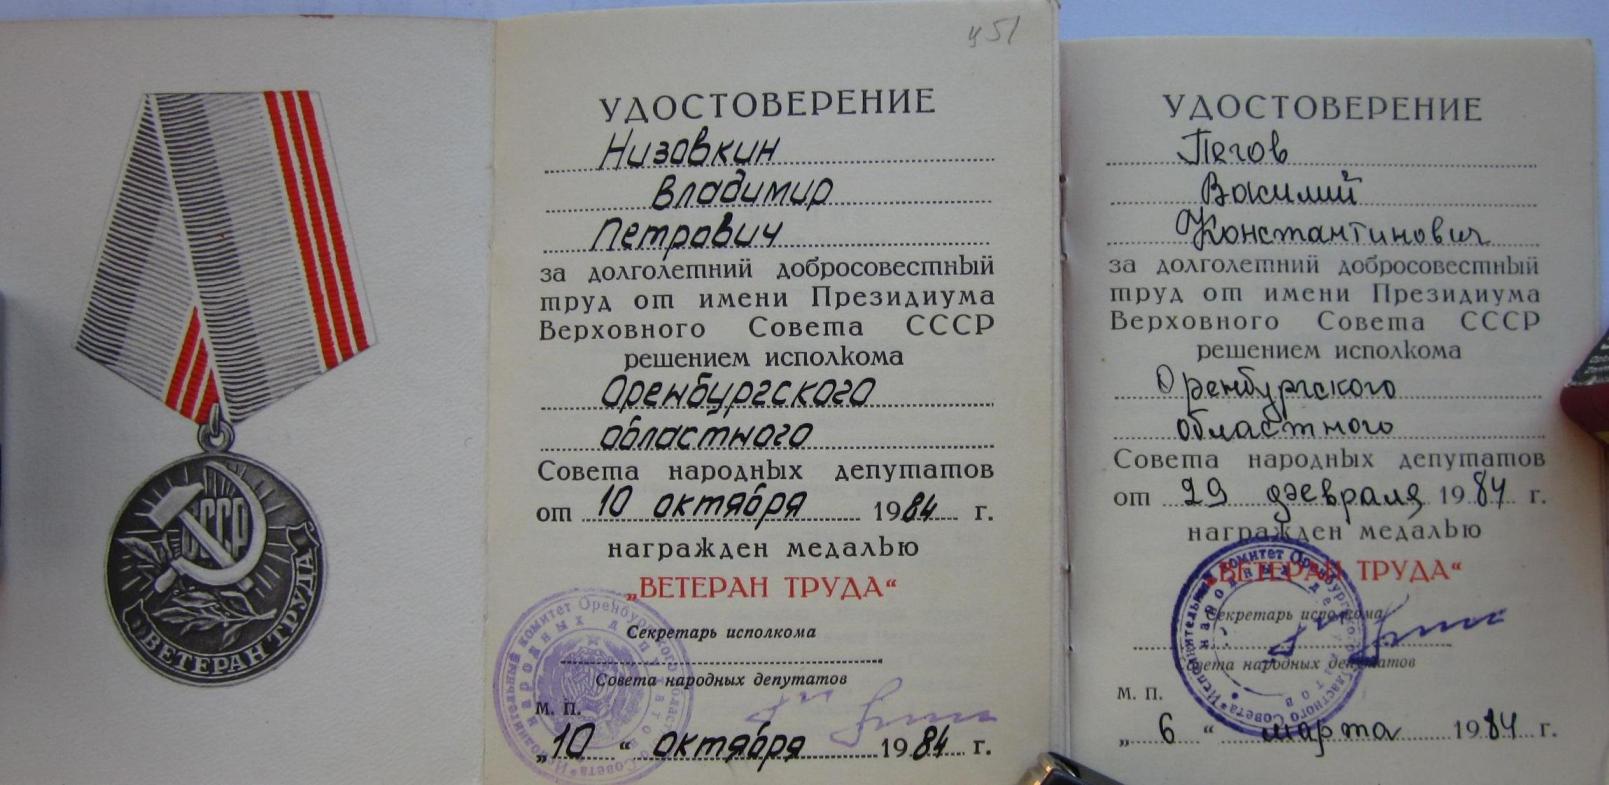 СССР
"ВЕТЕРАН ТРУДА"
УДОСТОВЕРЕНИЕ
Низовкин
Владимир
Петрович
за долголетний добросовестный
труд от имени Президиума
Верховного Совета СССР
решением исполкома
Оренбургского
областного
Совета народных депутатов
от 10 октября 1984 г.
награжден медалью
„ВЕТЕРАН ТРУДА“
Секретарь исполкома
Совета народных депутатов
М. П.
„10“ октября 1984 г.
УДОСТОВЕРЕНИЕ
Пегов
Василий
Константинович
за долголетний добросовестный
труд от имени Президиума
Верховного Совета СССР
решением исполкома
Оренбургского
областного
Совета народных депутатов
от 29 февраля 1984 г.
награжден медалью
„ВЕТЕРАН ТРУДА“
Секретарь исполкома
Совета народных депутатов
М. П.
„6“ марта 1984 г.
Исполнительный комитет Оренбургского областного Совета
народных депутатов